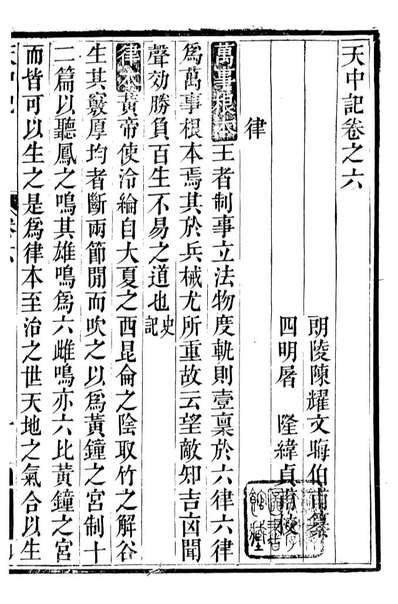 天中記卷之六
朗陵陳耀文晦伯甫纂
四明屠隆緯真甫校
律
萬事根本王者制事立法物度軌則壹稟於六律六律
爲萬事根本焉其於兵械尤所重故云望敵知吉凶聞
聲効勝負百生不易之道也史記
律本黃帝使泠綸自大夏之西昆侖之陰取竹之解谷
生其竅厚均者斷兩節閒而吹之以爲黃鐘之宮制十
二篇以聽鳳之鳴其雄鳴爲六雌鳴亦六比黃鐘之宮
而皆可以生之是爲律本至治之世天地之氣合以生